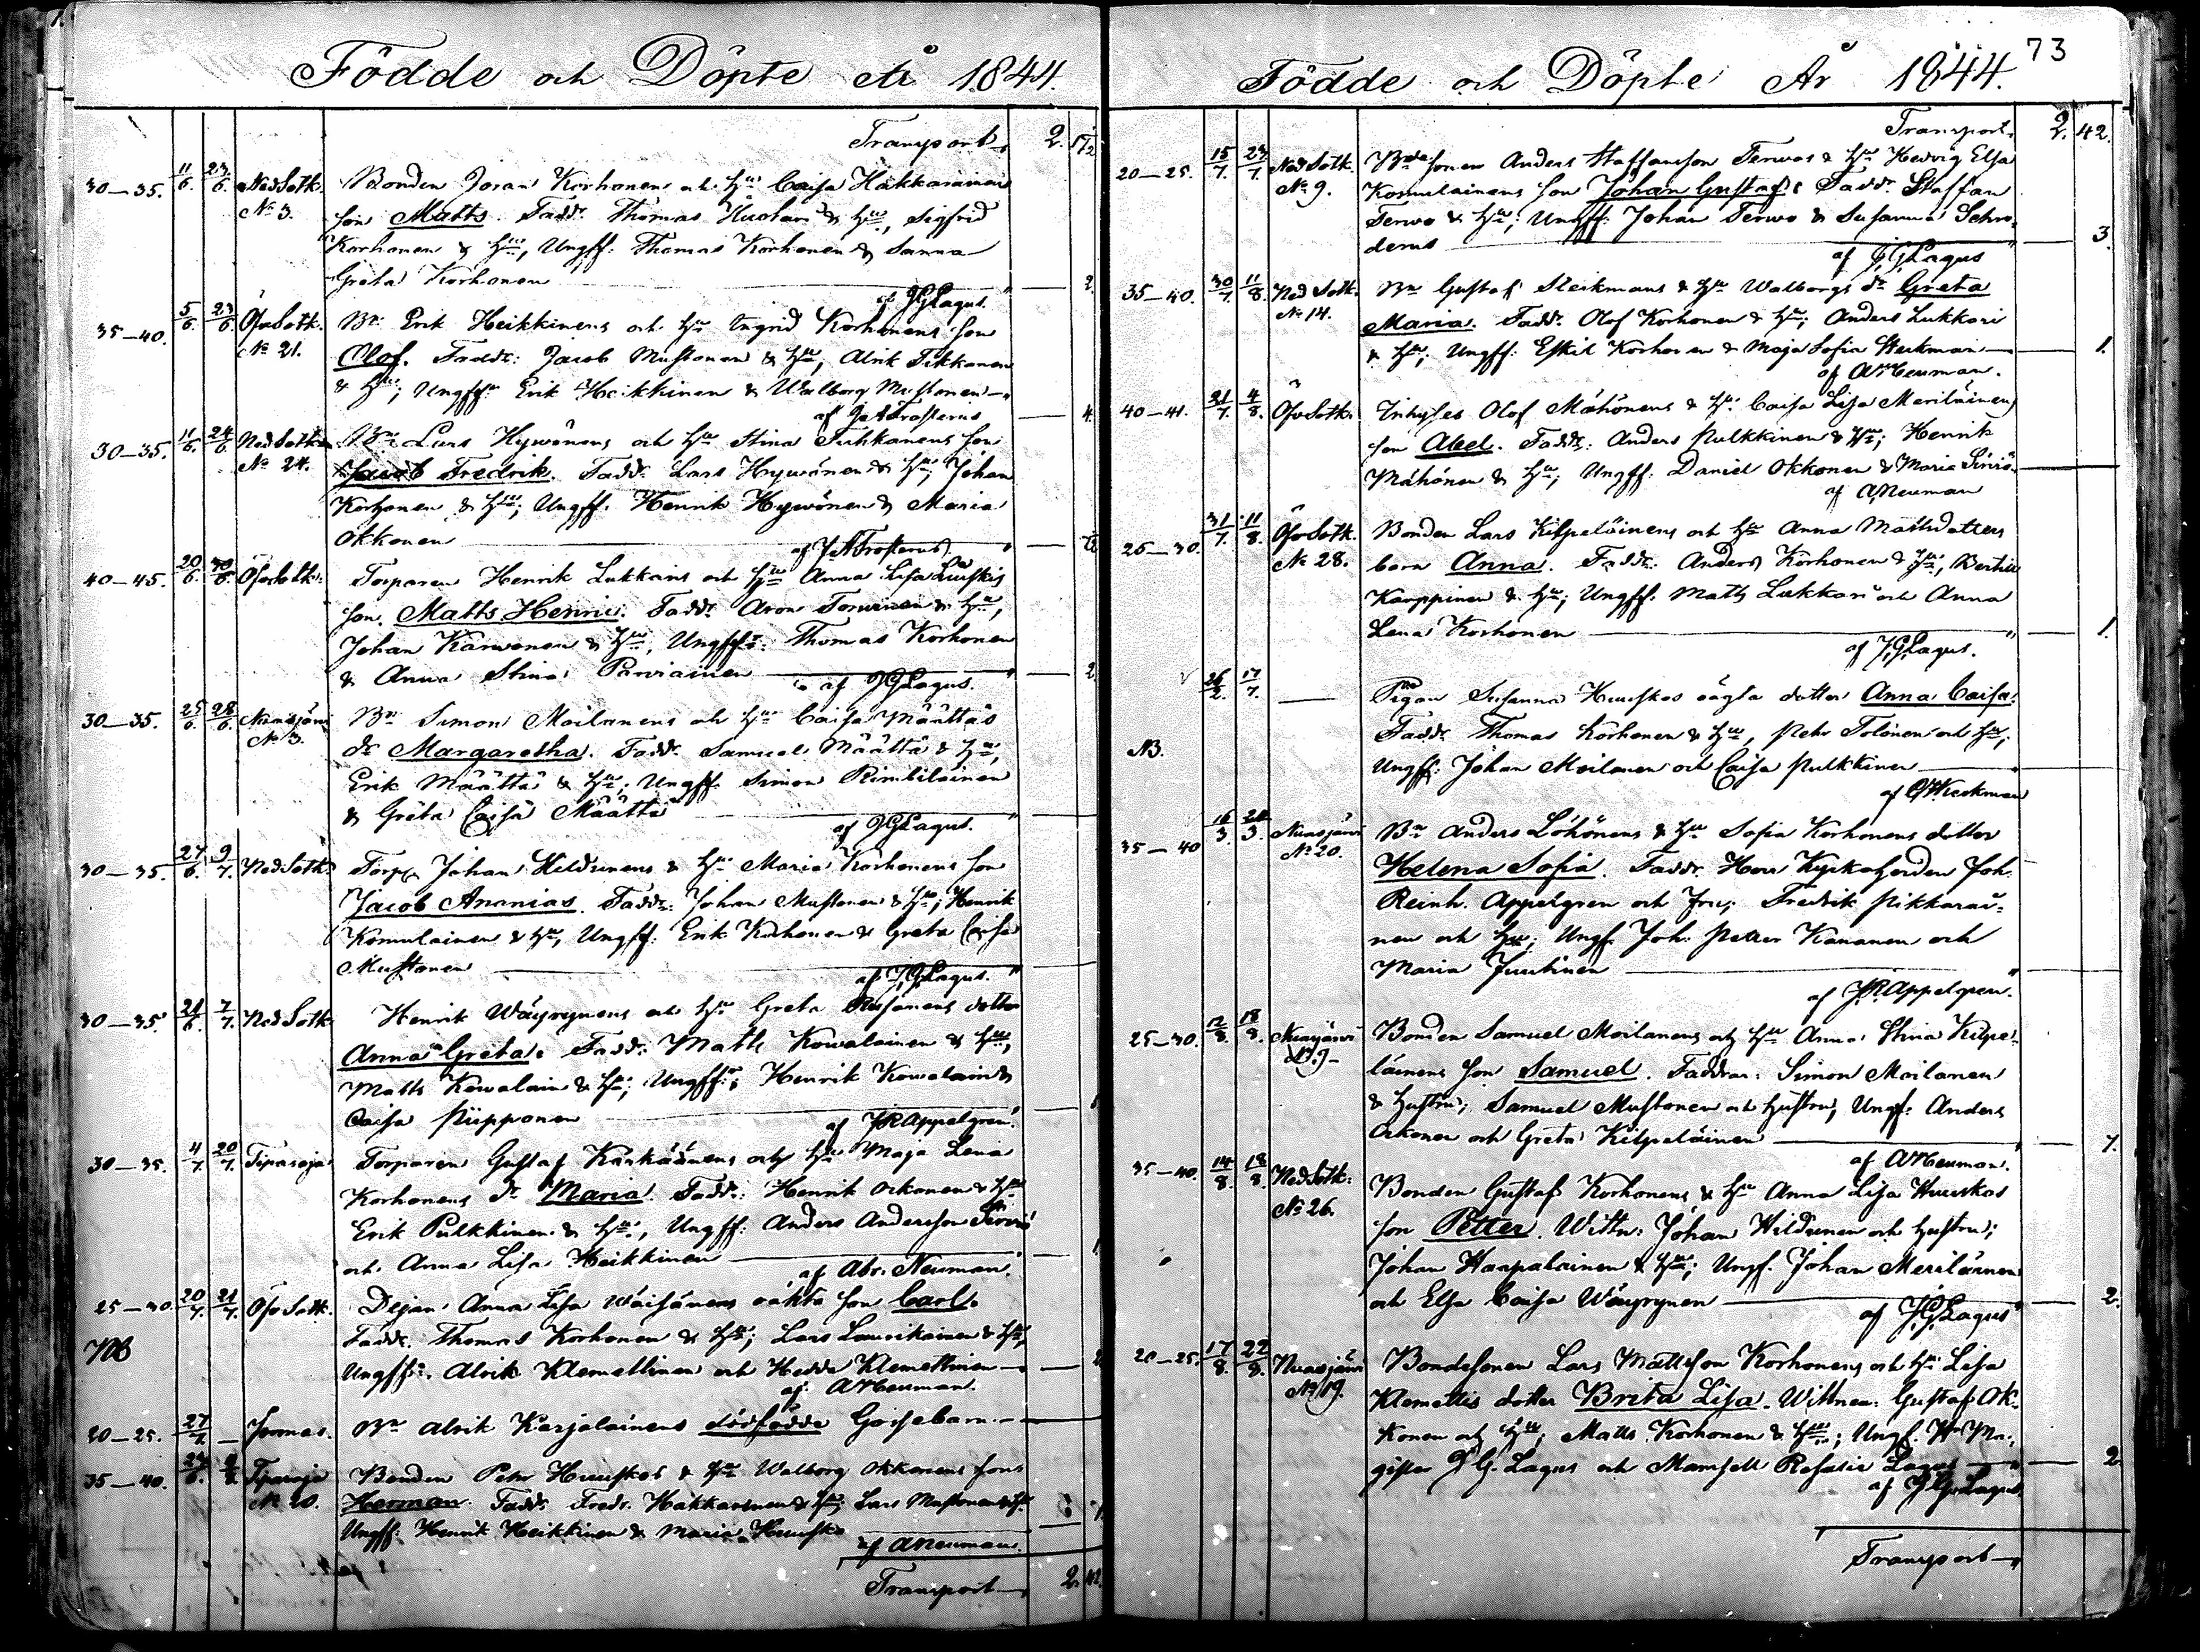 Födde och Döpte År 1844.
Transport 2.
30–35. 11/6. 23/6. Ned Sotk. Bonden Joran Korhonens och hu Caisa Hakkarainens
No 3. son Matts. Fadd: Thomas & hu, Sigfrid
Korhonen & hu, Ungff: Thomas Korhonen & Sanna
Greta Korhonen 2.
af JGLagus.
35–40. 5/6. 23/6. Öfv Sotk. Bn Erik Heikkinens och hu Ingrid Korhonens son
No 21. Olof. Faddr: Jacob Mustonen & hu, Alrik Tikkanen
& hu; Ungff: Erik Heikkinen & Walborg Mustonen
af JAFrosterus 4.
30–35. 11/6. 24/6. Ned Sotk. Bn Lars Hywönens och hu Stina Tuhkanens son
No 24. Jacob Fredrik. Fadd: Lars Hywönen & hu; Johan
Korhonen & hu; Ungff. Henrik Hywönen & Maria
Okkonen
af JAFrosterus
40–45. 20/6. 30/6. Öfv Sotk. Torparen Henrik Lukkaris och hu Anna Lisa
son. Matts Henric. Fadd: Aron Torvinen & hu,
Johan Karwonen & hu, Ungff: Thomas Korhonen
& Anna Stina Parviainen 2.
af JGLagus.
30–35. 25/6. 28/6. Nuasjärvi Bn Simon Moilanens och hu Caisa Määttäs
No 3. dr Margaretha. Fadd: Samuel Määttä & hu,
Erik Määttä & hu; Ungff. Simon Rimbiläinen
& Greta Caisa Määttä
af JGLagus.
30–35. 27/6. 9/7. Ned Sotk. Torp. Johan Hildunens & hu Maria Korhonens son
Jacob Ananias. Fadd: Johan Mustonen & hu; Henrik
Komulainen & hu, Ungff: Erik Korhonen & Greta Caisa
Mustonen
af JGLagus.
30–35. 7/7. Ned Sotk. Henrik Wäyrynens och hu Greta dotter
Anna Greta. Fadd: Matts Kowalainen & hu,
Matts Kowalain & hu; Ungff: Henrik Kowalain &
Caisa Piipponen
af JRAppelgren.
30–35. 4/7. 20/7. Tipasoja Torparen Gustaf Karkäänens och hu Maja Lena
Korhonens dr Maria. Fadd: Henrik Okkonen & hu
Erik Pulkkinen & hu, Ungff: Anders Andersson
och Anna Lisa Heikkinen
af Abr. Neuman.
25–30. 20/7. 21/7. Öfv Sotk. Dejan Anna Lisa Wäisänens oäkta son Carl.
Fadd: Thomas Korhonen & hu; Lars Laurikainen & hu;
Ungff: Alrik Klemettinen och Hedda Klemettinen
af ANeuman.
20–25. 27/7. – Jormas. Bn Alrik Karjalainens dödfödde Gossebarn.
35–40. Tipasoja Bonden Pehr Huuskos & hu Walborg Okkonens son
No 20. Herman. Fadd: Fredr. Hakkarainen & hu; Lars Mustonen & hu
Ungff: Henrik Heikkinen & Maria Huusko
af ANeuman.
Transport 2. 42
Födde och Döpte År 1844. 73
Transport 2. 42.
20–25. 15/7. 23/7. Ned Sotk. Bdesonen Anders Staffansson Terwos & hu Hedvig Elsa
No 9. Komulainens son Johan Gustaf: Fadd: Staffan
Terwo & hu; Ungff: Johan Terwo & Susanna Schro-
derus 3.
af JGLagus
35–40. 30/7. 11/8. Ned Sotk. Bn Gustaf Steikmans & hu Walborgs dr Greta
No 14. Maria. Fadd: Olof Korhonen & hu; Anders Lukkari
& hu; Ungff: Eskil Korhonen & Maja Sofia Steikman 1.
af ANeuman.
40–41. 21/7. 4/8. Öfv Sotk. Inhyses Olof Mähönens & hu Caisa Lisa Meriläinens
son Abel. Fadd: Anders Pulkkinen & hu; Henrik
Mähönen & hu; Ungff: Daniel Okkonen & Maria
af ANeuman
25–30. 31/7. 11/8. Öfv Sotk. Bonden Lars Kilpeläinens och hu Anna Mattsdotters
No 28. barn Anna. Fadd: Anders Korhonen & hu, Bertill
Karppinen & hu; Ungff. Matts Lukkari och Anna
Lena Korhonen 1.
af JGLagus.
17/7. — Pigan Susanna Huuskos oägta dotter Anna Caisa.
NB. Fadd: Thomas Korhonen & hu, Pehr Tolonen och hu,
Ungff: Johan Moilanen och Caisa Pulkkinen
35–40 16/3. 24/3. Nuasjärvi Bn Anders Löhönens & hu Sofia Korhonens dotter
No 20. Helena Sofia. Faddr: Herr Kyrkoherden Joh.
Reinh. Appelgren och Fru; Fredrik Pikkarai-
nen och hu; Ungf. Joh. Petter Kananen och
Maria Juntinen
af JRAppelgren.
25–30. 12/8. 18/8. Nuasjärvi Bonden Samuel Moilanens och hu Anna Stina Kilpe-
No 9 läinens son Samuel. Faddrar: Simon Moilanen
& hustru; Samuel Mustonen och hustru; Ungf: Anders
Okkonen och Greta Kilpeläinen 7.
af ANeuman.
35–40. 14/8. 18/8. Ned Sotk. Bonden Gustaf Korhonens & hu Anna Lisa Huuskos
No 26. son Petter. Wittn: Johan Hildunen och hustru;
Johan Haapalainen & hu; Ungf. Johan Meriläinen
och Elsa Caisa Wäyrynen 2.
af JGLagus
20–25. 17/8. 22/8. Nuasjärvi Bondesonen Lars Mattsson Korhonens och hu Lisa
No 19. Klemettis dotter Brita Lisa. Wittnen: Gustaf Ok-
konen och hu; Matts Korhonen & hu; Ungf. Hr Ma-
gister J.G. Lagus och Mamsell Rosalie Lagus 2
af JGLagus.
Transport